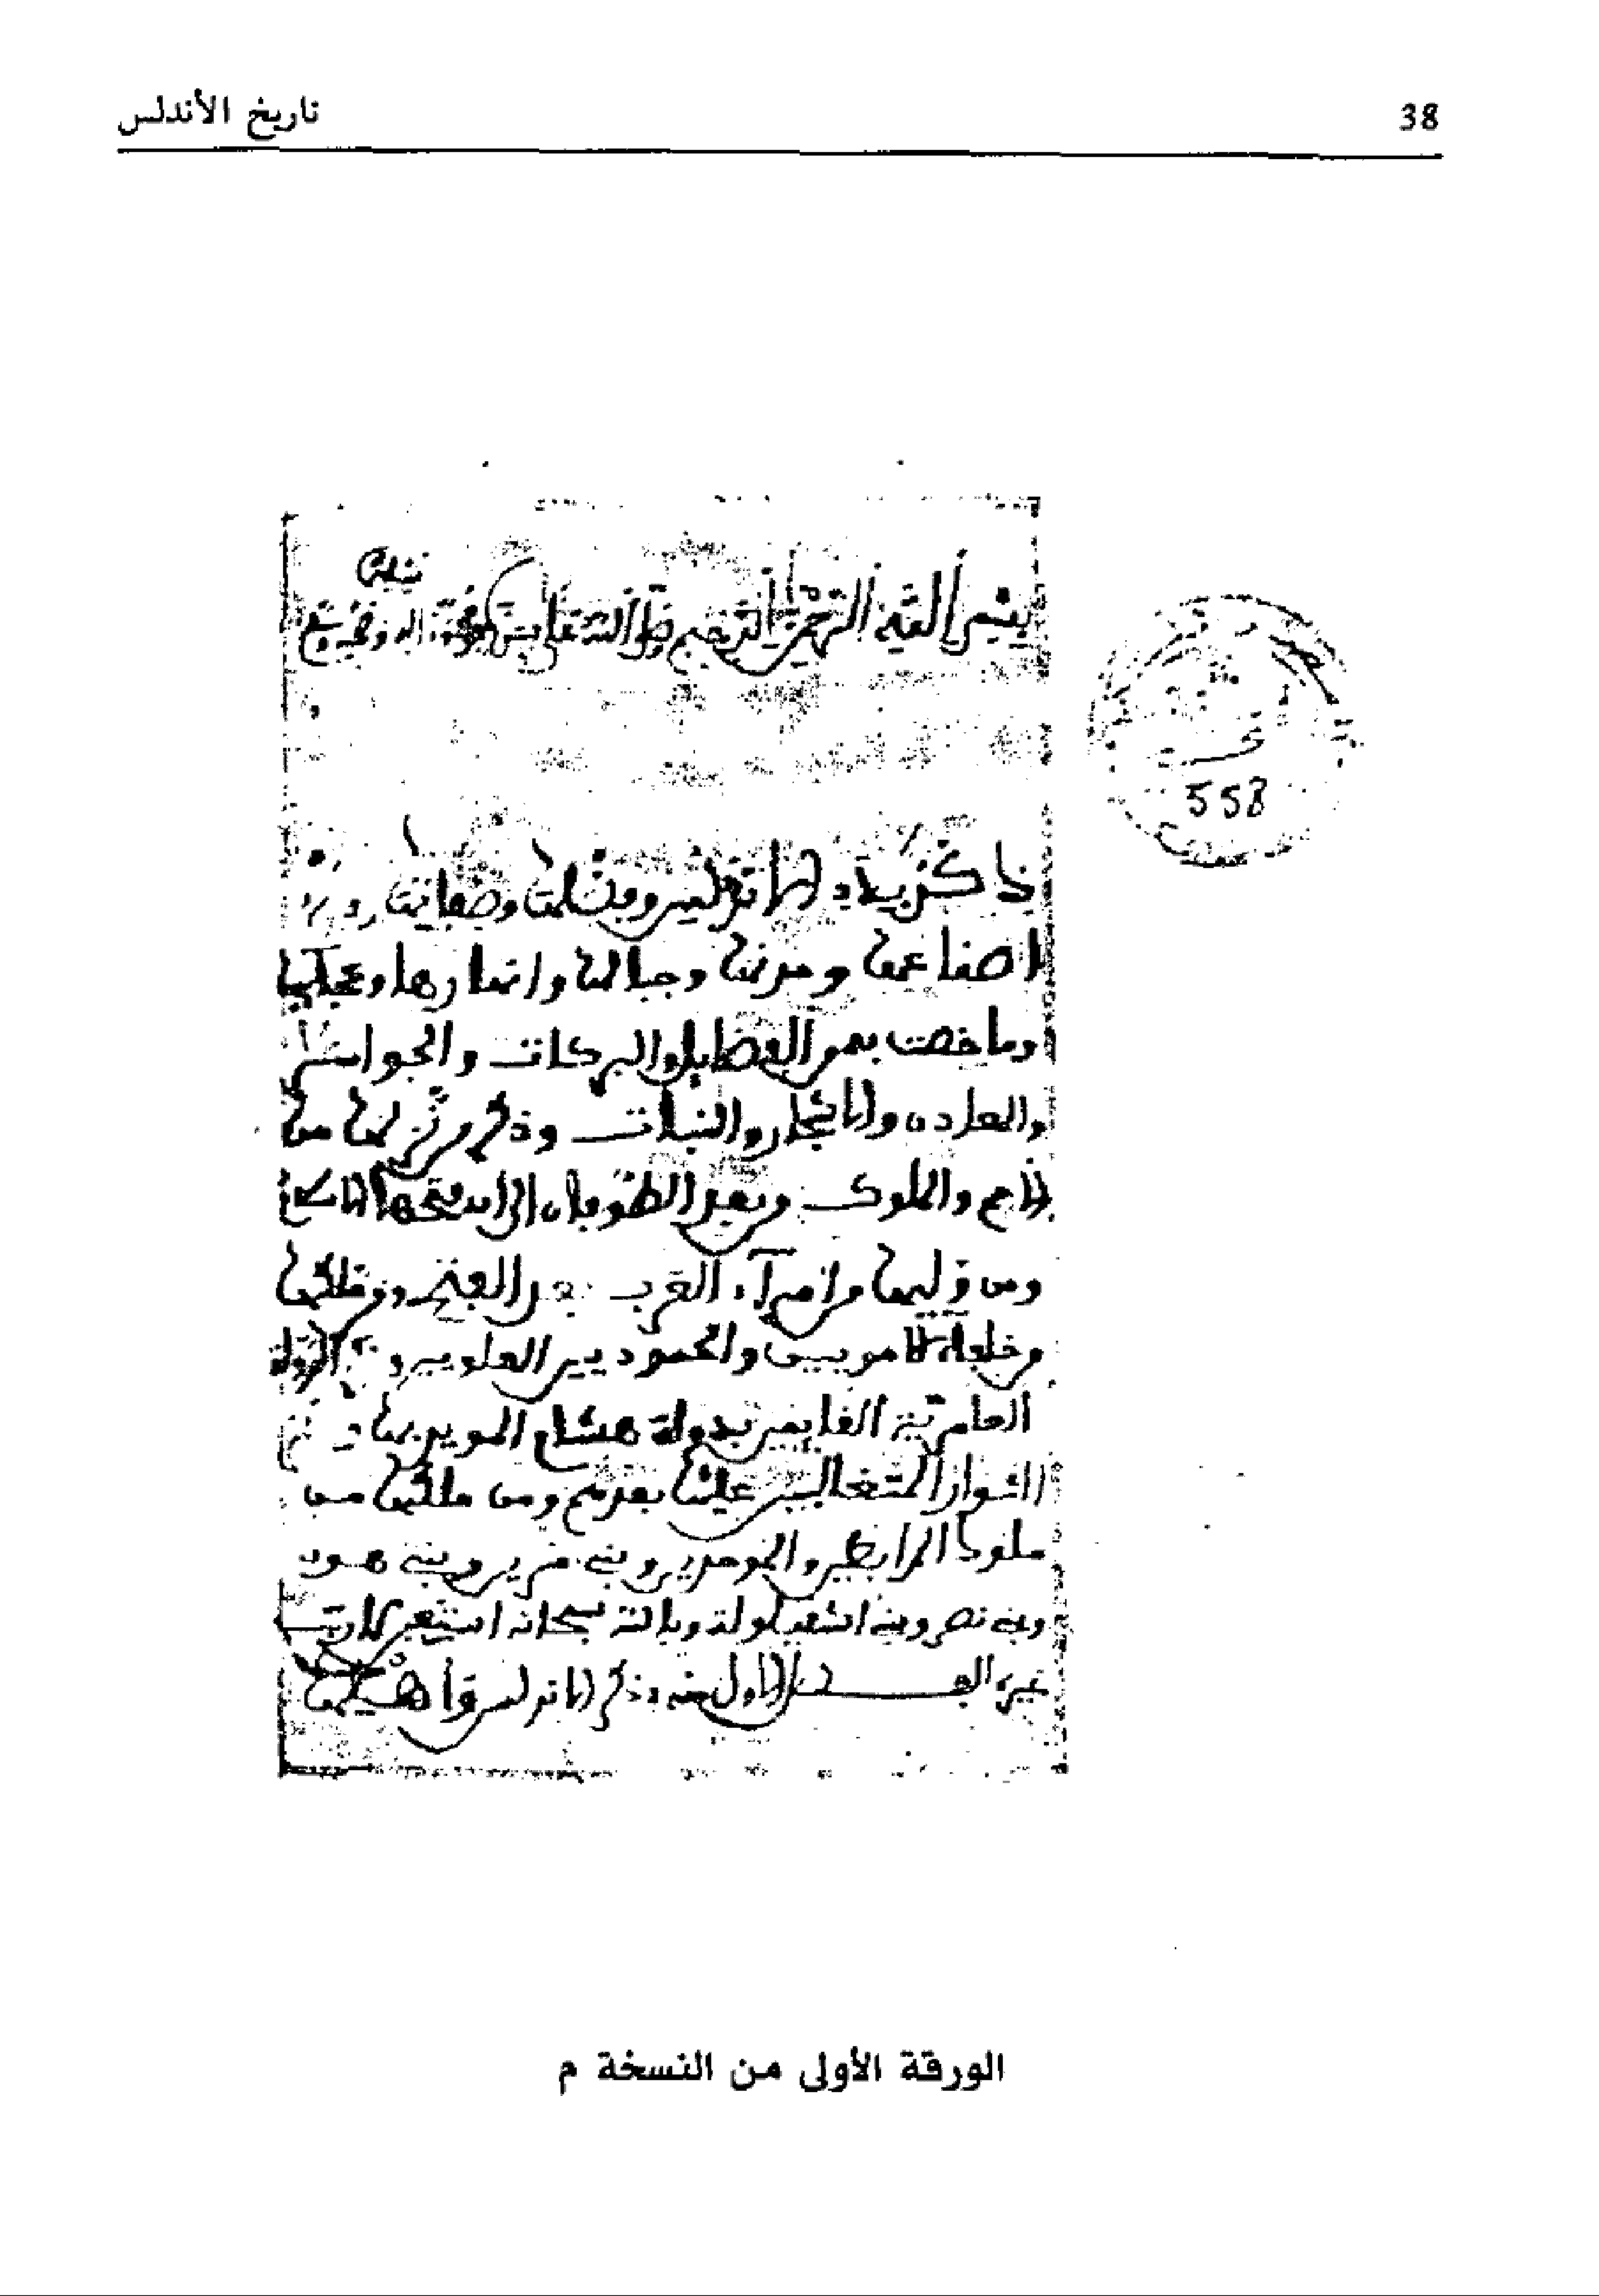 38
تاريخ الأندلس
بسم الله الرحمن الرحيم صلى الله على
558
ذكر بلاد الاندلس وفضلها وصفاتها
اصقاعها ومدنها وجبالها وانهارها وعجايبها
وما خصت به من الفضايل والبركات والخواص
والمعادن والاشجار والنبات وذكر من نزلها من
الامم والملوك من بعد الطوفان الى ان فتحها
ومن وليها من امرآء العرب بعد الفتح ومن ملكها
من خلفاء الامويين والحموديين العلويين و الدولة
العامرية القايمين بدولة هشام المويد بها
الثوار المتغالبين عليها بعدهم ومن ملكها من
ملوك المرابطين والموحدين وبني مرين وبني هود
وبني نصر وبني اشقيلولة وبالله سبحانه استعين لا رب
غيره الفصل الاول منه ذكر الاندلس
الورقة الأولى من النسخة م